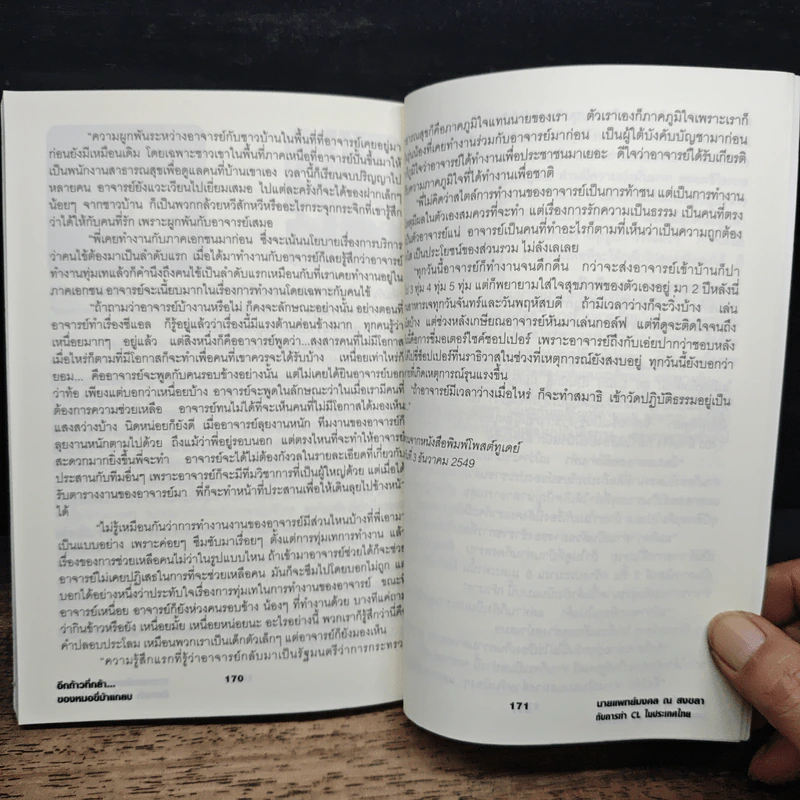 "ความผูกพันระหว่างอาจารย์กับชาวบ้านในพื้นที่ที่อาจารย์เคยอยู่มา
ก่อนยังมีเหมือนเดิม โดยเฉพาะชาวเขาในพื้นที่ภาคเหนือที่อาจารย์ปั้นขึ้นมาให้
เป็นพนักงานสาธารณสุขเพื่อดูแลคนที่บ้านเขาเอง เวลานี้ก็เรียนจบปริญญาไป
หลายคน อาจารย์ยังแวะเวียนไปเยี่ยมเสมอ ไปแต่ละครั้งก็จะได้ของฝากเล็กๆ
น้อยๆ จากชาวบ้าน ก็เป็นพวกกล้วยหวีสักหวีหรืออะไรกระจุกกระจิกที่เขารู้สึก
ว่าได้ให้กับคนที่รัก เพราะผูกพันกับอาจารย์เสมอ
"พี่เคยทำงานกับภาคเอกชนมาก่อน ซึ่งจะเน้นนโยบายเรื่องการบริการ
ว่าคนไข้ต้องมาเป็นลำดับแรก เมื่อได้มาทำงานกับอาจารย์ก็เลยรู้สึกว่าอาจารย์
ทำงานทุ่มเทแล้วก็คำนึงถึงคนไข้เป็นลำดับแรกเหมือนกับที่เราเคยทำงานอยู่ใน
ภาคเอกชน อาจารย์จะเนี้ยบมากในเรื่องการทำงานโดยเฉพาะกับคนไข้
"ถ้าถามว่าอาจารย์บ้างานหรือไม่ ก็คงจะลักษณะอย่างนั้น อย่างตอนที่
อาจารย์ทำเรื่องซีแอล ก็รู้อยู่แล้วว่าเรื่องนี้มีแรงต้านค่อนข้างมาก ทุกคนรู้ว่า
เหนื่อยมากๆ อยู่แล้ว แต่สิ่งหนึ่งก็คืออาจารย์พูดว่า...สงสารคนที่ไม่มีโอกาส
เมื่อไหร่ก็ตามที่มีโอกาสก็จะทำเพื่อคนที่เขาควรจะได้รับบ้าง เหนื่อยเท่าไหร่ก็
ยอม... คืออาจารย์จะพูดกับคนรอบข้างอย่างนั้น แต่ไม่เคยได้ยินอาจารย์บอก
ว่าท้อ เพียงแต่บอกว่าเหนื่อยบ้าง อาจารย์จะพูดในลักษณะว่าในเมื่อเรามีคนที่
ต้องการความช่วยเหลือ อาจารย์ทนไม่ได้ที่จะเห็นคนที่ไม่มีโอกาสได้มองเห็น
แสงสว่างบ้าง นิดหน่อยก็ยังดี เมื่ออาจารย์ลุยงานหนัก ทีมงานของอาจารย์ก็
ลุยงานหนักตามไปด้วย ถึงแม้ว่าพี่อยู่รอบนอก แต่ตรงไหนที่จะทำให้อาจารย์
สะดวกมากยิ่งขึ้นพี่จะทำ อาจารย์จะได้ไม่ต้องกังวลในรายละเอียดที่เกี่ยวกับ
ประสานกับทีมอื่นๆ เพราะอาจารย์ก็จะมีทีมวิชาการที่เป็นผู้ใหญ่ด้วย แต่เมื่อได้
รับตารางงานของอาจารย์มา พี่ก็จะทำหน้าที่ประสานเพื่อให้เดินลุยไปข้างหน้า
ได้
"ไม่รู้เหมือนกันว่าการทำงานงานของอาจารย์มีส่วนไหนบ้างที่พี่เอามา
เป็นแบบอย่าง เพราะค่อยๆ ซึมซับมาเรื่อยๆ ตั้งแต่การทุ่มเทการทำงาน แล้ว
เรื่องของการช่วยเหลือคนไม่ว่าในรูปแบบไหน ถ้าเข้ามาอาจารย์ช่วยได้ก็จะช่วย
อาจารย์ไม่เคยปฏิเสธในการที่จะช่วยเหลือคน มันก็จะซึมไปโดยบอกไม่ถูก แต่
บอกได้อย่างหนึ่งว่าประทับใจเรื่องการทุ่มเทในการทำงานของอาจารย์ ขณะที่
อาจารย์เหนื่อย อาจารย์ก็ยังห่วงคนรอบข้าง น้องๆ ที่ทำงานด้วย บางทีแค่ถาม
ว่ากินข้าวหรือยัง เหนื่อยมั้ย เหนื่อยหน่อยนะ อะไรอย่างนี้ พวกเราก็รู้สึกว่านี่คือ
คำปลอบประโลม เหมือนพวกเราเป็นเด็กตัวเล็กๆ แต่อาจารย์ก็ยังมองเห็น
"ความรู้สึกแรกที่รู้ว่าอาจารย์กลับมาเป็นรัฐมนตรีว่าการกระทรวง
170
อีกก้าวที่กล้า...
ของหมอขี่ม้าแกลบ
ธารณสุขก็คือภาคภูมิใจแทนนายของเรา ตัวเราเองก็ภาคภูมิใจเพราะเราก็
น้องที่เคยทำงานร่วมกับอาจารย์มาก่อน เป็นผู้ใต้บังคับบัญชามาก่อน
ภูมิใจว่าอาจารย์ได้ทำงานเพื่อประชาชนมาเยอะ ดีใจว่าอาจารย์ได้รับเกียรติ
ความภาคภูมิใจที่ได้ทำงานเพื่อชาติ
"พี่ไม่คิดว่าสไตล์การทำงานของอาจารย์เป็นการท้าชน แต่เป็นการทำงาน
เหตุผลในตัวเองสมควรที่จะทำ แต่เรื่องการรักความเป็นธรรม เป็นคนที่ตรง
เป็นตัวอาจารย์แน่ อาจารย์เป็นคนที่ทำอะไรก็ตามที่เห็นว่าเป็นความถูกต้อง
เป็นประโยชน์ของส่วนรวม ไม่ลังเลเลย
"ทุกวันนี้อาจารย์ก็ทำงานจนดึกดื่น กว่าจะส่งอาจารย์เข้าบ้านก็ปา
3 ทุ่ม 4 ทุ่ม 5 ทุ่ม แต่ก็พยายามใส่ใจสุขภาพของตัวเองอยู่ มา 2 ปีหลังนี้
อาหารเจทุกวันจันทร์และวันพฤหัสบดี ถ้ามีเวลาว่างก็จะวิ่งบ้าง เล่น
บ้าง แต่ช่วงหลังเกษียณอาจารย์หันมาเล่นกอล์ฟ แต่ที่ดูจะติดใจจนถึง
คือการขี่มอเตอร์ไซค์ชอปเปอร์ เพราะอาจารย์ถึงกับเอ่ยปากว่าชอบหลัง
ไปขี่ช็อปเปอร์ที่นราธิวาสในช่วงที่เหตุการณ์ยังสงบอยู่ ทุกวันนี้ยังบอกว่า
เกิดเหตุการณ์รุนแรงขึ้น
"ถ้าอาจารย์มีเวลาว่างเมื่อไหร่ ก็จะทำสมาธิ เข้าวัดปฏิบัติธรรมอยู่เป็น
จากหนังสือพิมพ์โพสต์ทูเดย์
ที่ 3 ธันวาคม 2549
171
นายแพทย์มงคล ณ สงขลา
กับการทำ CL ในประเทศไทย